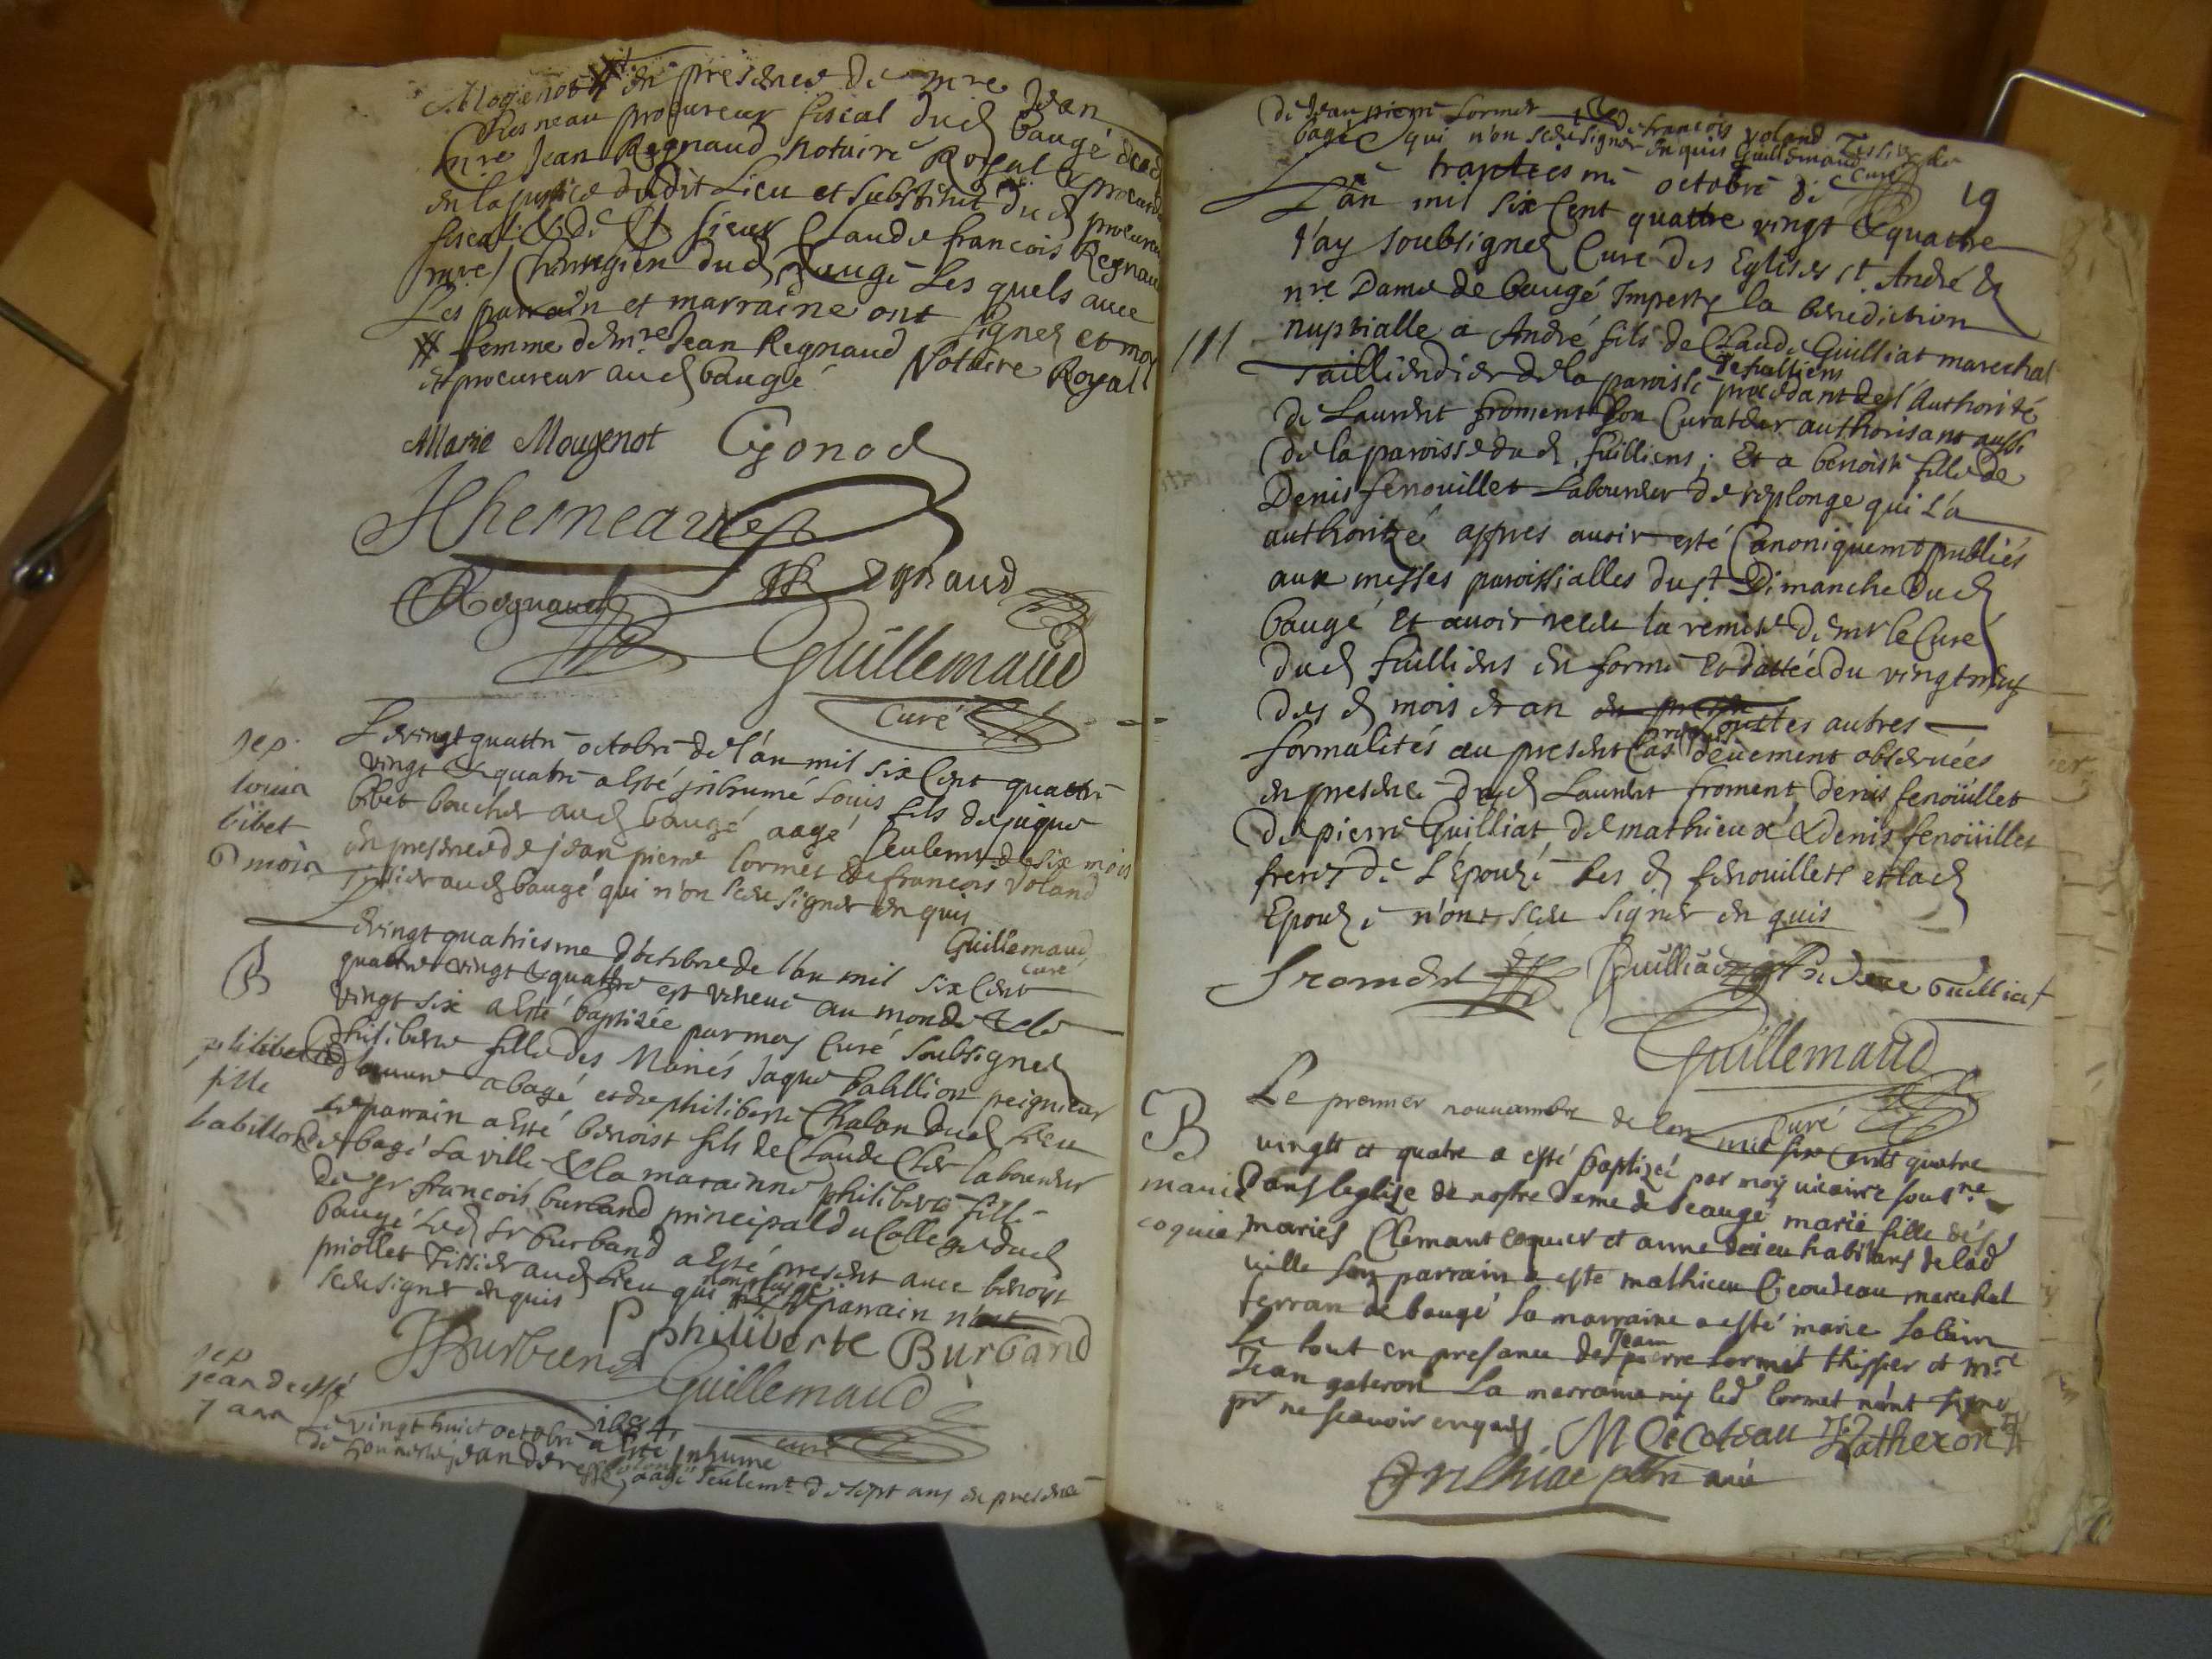 Mogenot # en presence de mre Jean
Chesneau procureur fiscal dud baugé de
mre Jean Regnaud Notaire Royal & procureur
en la justice dudit Lieu et Substitut dud procureur
fiscal & de sieur Claude francois Regnaud
mre Chirurgien dud Baugé Les quels avec
Les parrain et marraine ont signez et moy
# femme de mre Jean Regnaud Notaire Royal
et procureur aud baugé
Marie Mougenot Gonod
JChesneau
Regnaud Regnaud
Guillemaud
curé
sep.
louis
bibet
6 mois
Le vingt quattre octobre de l'an mil six Cent quattre
vingt & quatre a Esté inhumé Louis fils de jaque
bibet boucher aud baugé aagé seulemt de six mois
en presence de jean pierre cormet & de francois voland
tissier aud baugé qui n'on sceu signer en quis
Guillemaud
curé
B
philiberte
fille
babillon
Le vingt quatriesme d'octobre de l'an mil six Cent
quattre vingt & quattre est veneue au monde & le
vingt six a Esté baptizée par moy Curé soubsigné
philiberte fille des Mariés Jaque babillion peignieur
a bagé et de philiberte Chalon dud Lieu
Le parrain a Esté benoist fils de Claude Cler laboureur
de bagé La ville & la marainne philiberte fille
de sr francois burband principal du College dud
baugé Led sr burband a Esté present avec benoist
priollet Tissier aud Lieu qui non plus que le parrain n'ont
sceu signer en quis
JBurband philiberte Burband
Guillemaud
curé
sep
jean
7 ans
Le vingt huict octobre 1684 a Esté inhumé
jean aagé seulemt de sept ans en presence
de Jean pierre Cormet & de francois voland Tissier de
bagé qui n'on sceu signer en quis Guillemaud
curé
19
Le trantiesme octobre de
L'an mil six Cent quattre vingt & quattre
J'ay soubsigné Curé des Eglises st. André &
nre Dame de baugé Imperty la benediction
nuptialle a André fils de Claude Guilliat marechal
Taillendier de la paroisse de fuilliens procedant de l'Authorité
de Laurent froment son Curateur authorisant aussi
de la paroisse dud fuilliens; Et a benoiste fille de
Denis fenouillet Laboureur de replonge qui l'a
authorizée appres avoir esté Canoniquemt publiés
aux messes paroissialles du st. Dimanche dud
baugé Et avoir receu la remise de mr le Curé
dud fuilliens en forme & dattée du vingt neuf
des d mois et an toutes autres
formalités au present Cas requises deuement observées
en presence dud Laurent froment denis fenoüillet
de pierre Guilliat de mathieu & denis fenoüillet
freres de L'Epouzé Les d fenouillets et lad
Epouzé n'ont sceu signer en quis
froment Guilliat Guilliat
Guillemaud
curé
B
marie
coquié
Le premier nouvambre de lan mil six cents quatre
vingts et quatre a esté baptizé par moy vicaire sousne
dans leglise de nostre dame de beaugé marie fille dés
mariés Clemant coquier et anne habitans de lad
ville son parrain a esté mathieu marechal
ferran de baugé la marraine a esté marie
Le tout en presance de Jean pierre cormét thissier et mre
Jean gateron La marraine ny led cormet n'ont signe
pr ne scavoir enquis